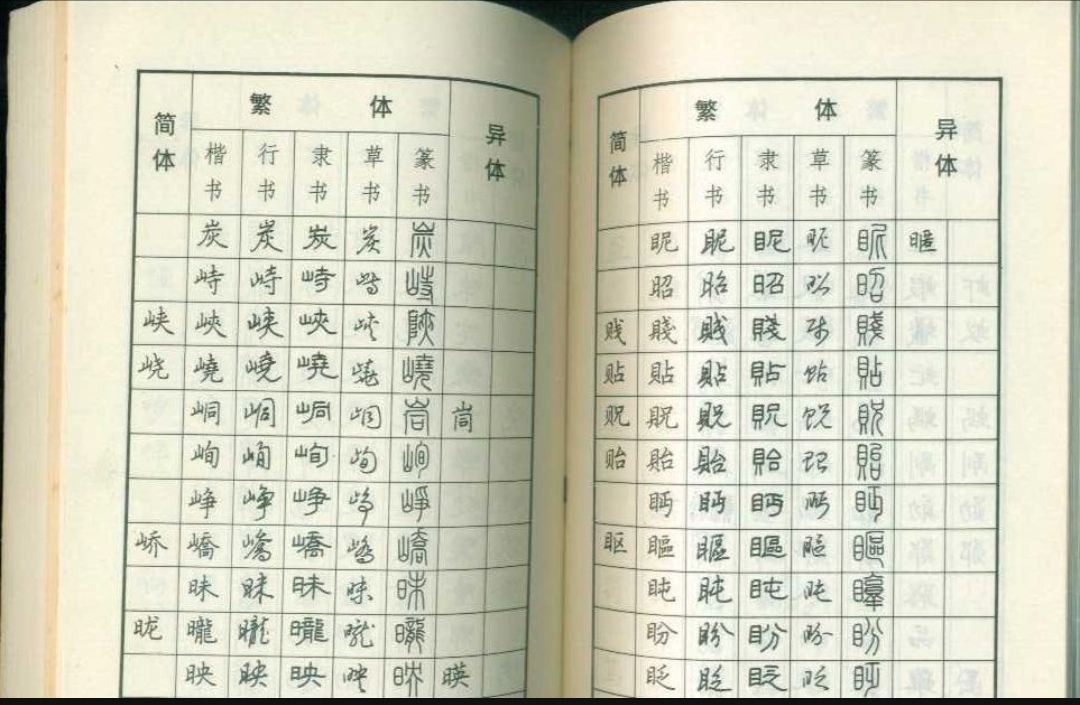 简体 繁体 异体
楷书 行书 隶书 草书 篆书
炭 炭 炭 炭 炭
峙 峙 峙 峙 峙
峡 峽 峽 峽 峽 峽
峣 嶢 嶢 嶢 嶢 嶢
峒 峒 峒 峒 峒 峝
峋 峋 峋 峋 峋
峥 峥 峥 峥 峥
峤 嶠 嶠 嶠 嶠 嶠
昧 昧 昧 昧 昧
昽 曨 曨 曨 曨 曨
映 映 映 映 映 暎
简体 繁体 异体
楷书 行书 隶书 草书 篆书
昵 昵 昵 昵 昵 暱
昭 昭 昭 昭 昭
贱 賤 賤 賤 賤 賤
贴 貼 貼 貼 貼 貼
贶 貺 貺 貺 貺 貺
贻 貽 貽 貽 貽 貽
眄 眄 眄 眄 眄
眍 瞘 瞘 瞘 瞘 瞘
盹 盹 盹 盹
盼 盼 盼 盼 盼
眨 眨 眨 眨